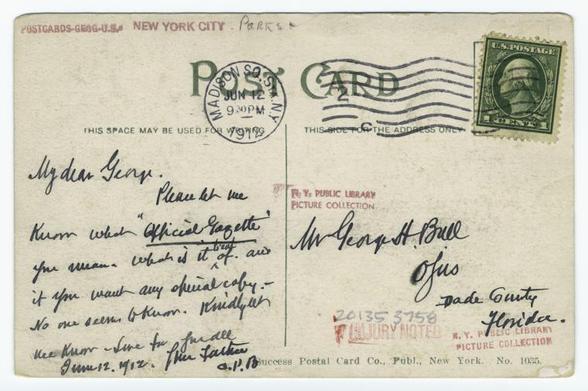 POSTCARDS-GEOG-U.S. NEW YORK CITY - Parks
POST CARD
MADISON SQ. STA. N.Y.
JUN 12
9 30 PM
1912
2
C
U.S. POSTAGE
1 CENT 1
THIS SPACE MAY BE USED FOR WRITING
THIS SIDE FOR THE ADDRESS ONLY
My dear George.
Please let me
Know what "Official Gazette"
you mean. What is it of. and
if you want any special copy.-
No one seems to Know. Kindly let
me Know - Love for you all
June 12. 1912. Your Father
C.P.B
N.Y. PUBLIC LIBRARY
PICTURE COLLECTION
Mr George H. Bull
Ojus
Dade County
Florida.
20135 3758
INJURY NOTED
N.Y. PUBLIC LIBRARY
PICTURE COLLECTION
Success Postal Card Co., Publ., New York. No. 1035.